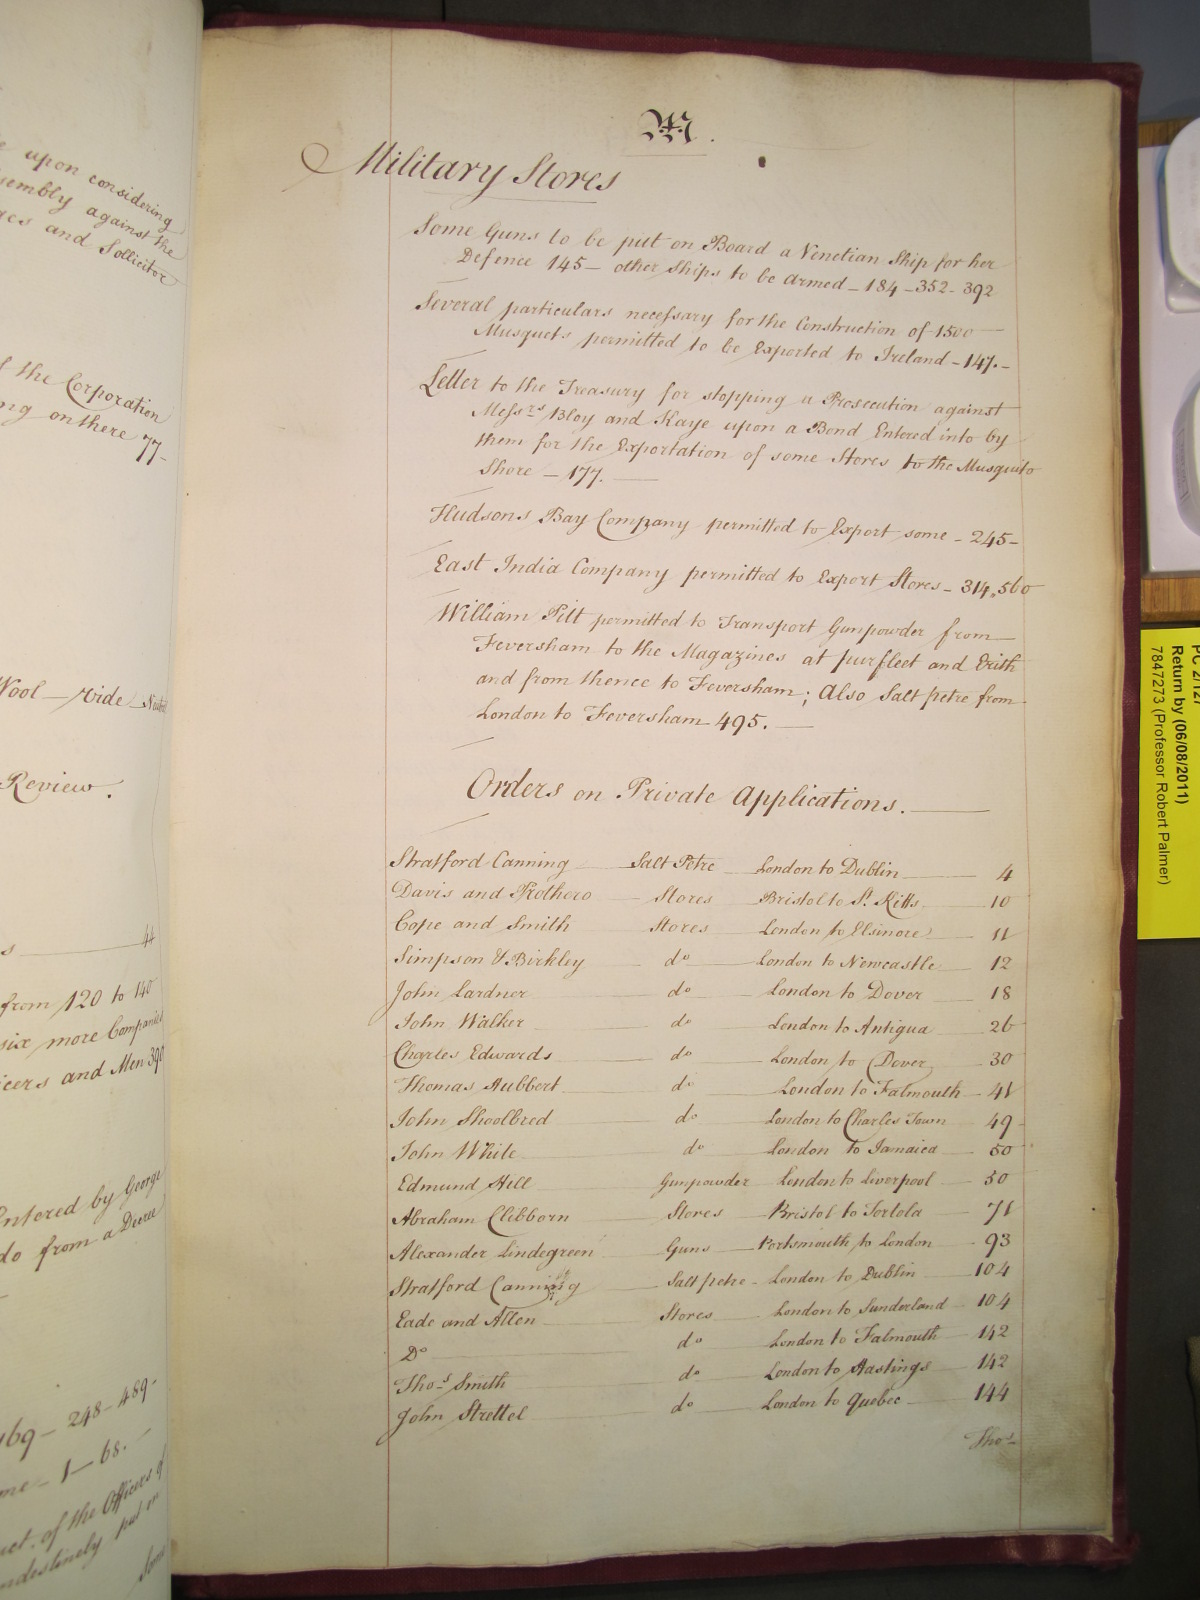 upon considering
sembly against the
and Sollicitor
the Corporation
on there 77-
Wool — vide
Review.
44
from 120 to 140
six more Companies
and Men 390
Entered by George
do from a Decree
469 - 248 - 489-
1 - 68.
of the Officers of
put on
Some
M.
Military Stores
Some Guns to be put on Board a Venetian Ship for her
Defence 145 - other Ships to be Armed - 184 - 352 - 392
Several particulars necessary for the Construction of 1500
Musquets permitted to be Exported to Ireland - 147. -
Letter to the Treasury for stopping a Prosecution against
Messrs Bloy and Kaye upon a Bond Entered into by
them for the Exportation of some Stores to the Musquito
Shore - 177.
Hudsons Bay Company permitted to Export some - 245 -
East India Company permitted to Export Stores - 314, 560
William Pitt permitted to Transport Gunpowder from
Feversham to the Magazines at purfleet and Erith
and from thence to Feversham; Also Salt petre from
London to Feversham 495.
Orders on Private Applications.
Stratford Canning Salt Petre London to Dublin 4
Davis and Prothero Stores Bristol to St. Kitts 10
Cope and Smith Stores London to Elsinore 11
Simpson & Birkley do London to Newcastle 12
John Lardner do London to Dover 18
John Walker do London to Antigua 26
Charles Edwards do London to Dover 30
Thomas Hubbert do London to Falmouth 41
John Shoolbred do London to Charles Town 49
John White do London to Jamaica 50
Edmund Hill Gunpowder London to Liverpool 50
Abraham Clibborn Stores Bristol to Tortola 71
Alexander Lindegreen Guns Portsmouth to London 93
Stratford Canning Salt petre - London to Dublin 104
Eade and Atten Stores London to Sunderland 104
Do do London to Falmouth 142
Thos. Smith do London to Hastings 142
John Strettel do London to Quebec 144
Thos.
PC 2/127
Return by (06/08/2011)
7847273 (Professor Robert Palmer)